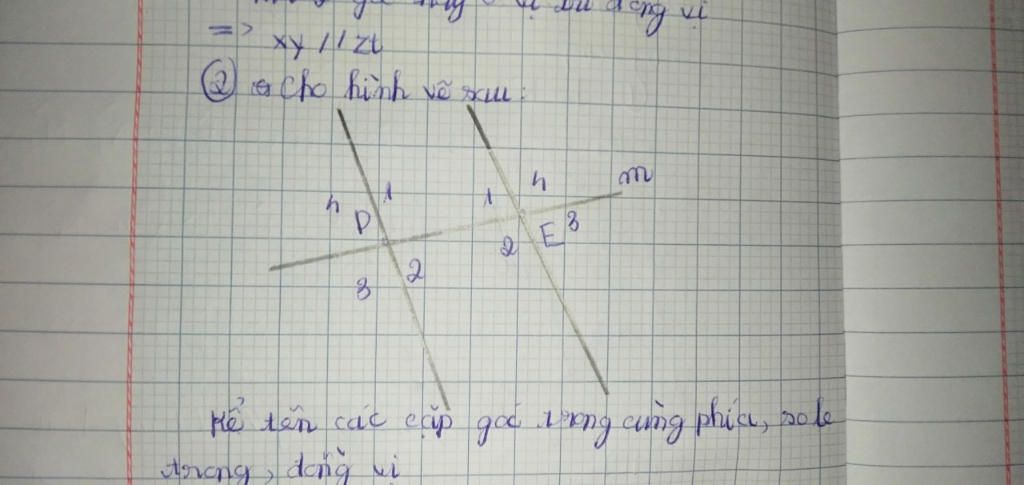 góc này ở vị trí đồng vị
=> xy // zt
② Cho hình vẽ sau:
m
4 1 1 4
D
2 E 3
3 2
Kể tên các cặp góc trong cùng phía, so le
trong, đồng vị